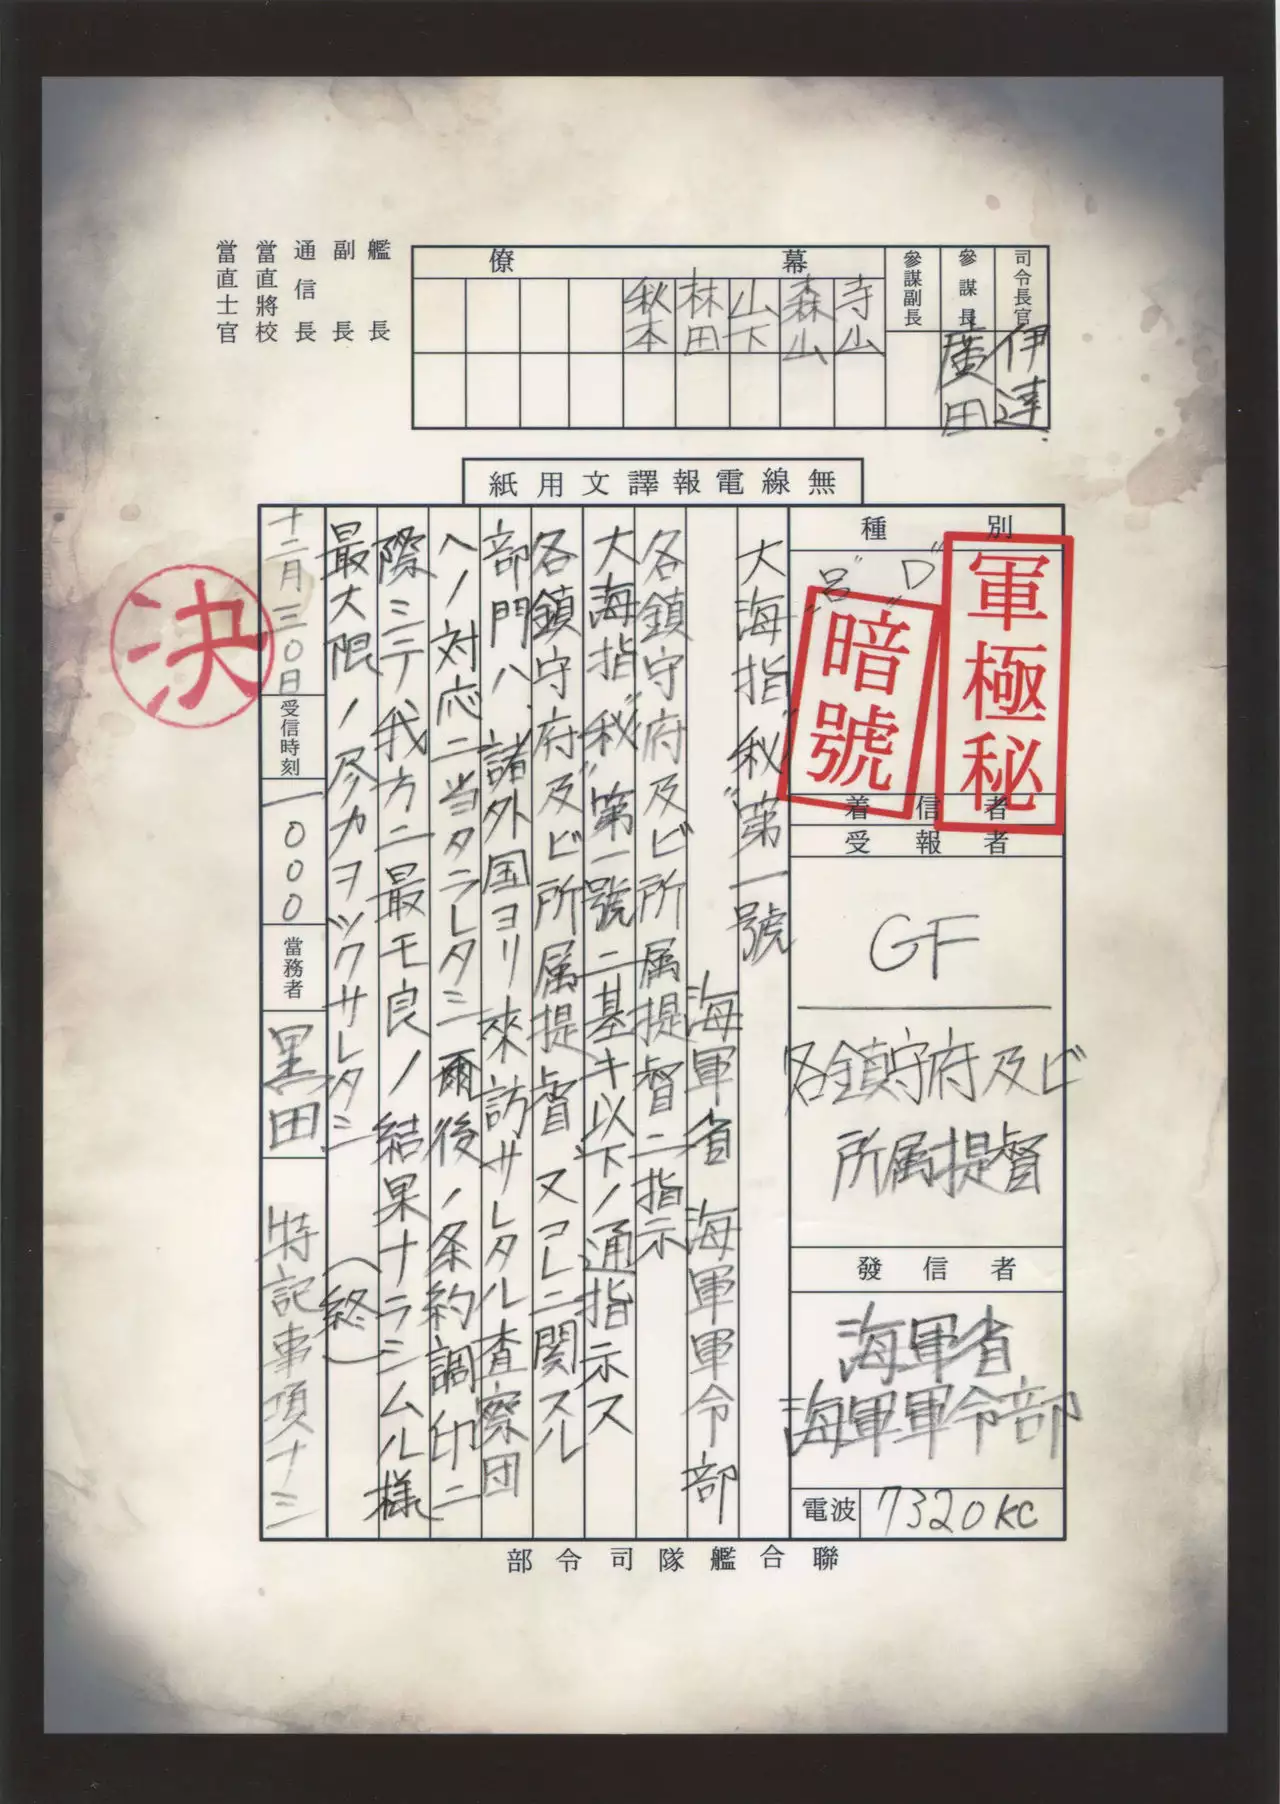 司令長官
伊達
參謀長
廣田
參謀副長
幕僚
寺山
森山
山下
林田
秋本
艦長
副長
通信長
當直將校
當直士官
無線電報譯文用紙
種別
"D"
"呂"
軍極秘
暗號
着信者
受報者
GF
各鎮守府及ビ
所属提督
發信者
海軍省
海軍軍令部
電波
7320KC
大海指"秘"第一號
海軍省 海軍軍令部
各鎮守府及ビ所属提督ニ指示
大海指"秘"第一號ニ基キ以下ノ通指示ス
各鎮守府及ビ所属提督、又コレニ関スル
部門ハ、諸外国ヨリ來訪サレタル査察団
ヘノ対応ニ当タラレタシ 爾後ノ条約調印ニ
際シテ我方ニ最モ良ノ結果ナラシムル様
最大限ノ尽力ヲツクサレタシ
(終)
十二月三〇日
受信時刻
一〇〇〇
當務者
黒田
特記事項ナシ
決
聯合艦隊司令部